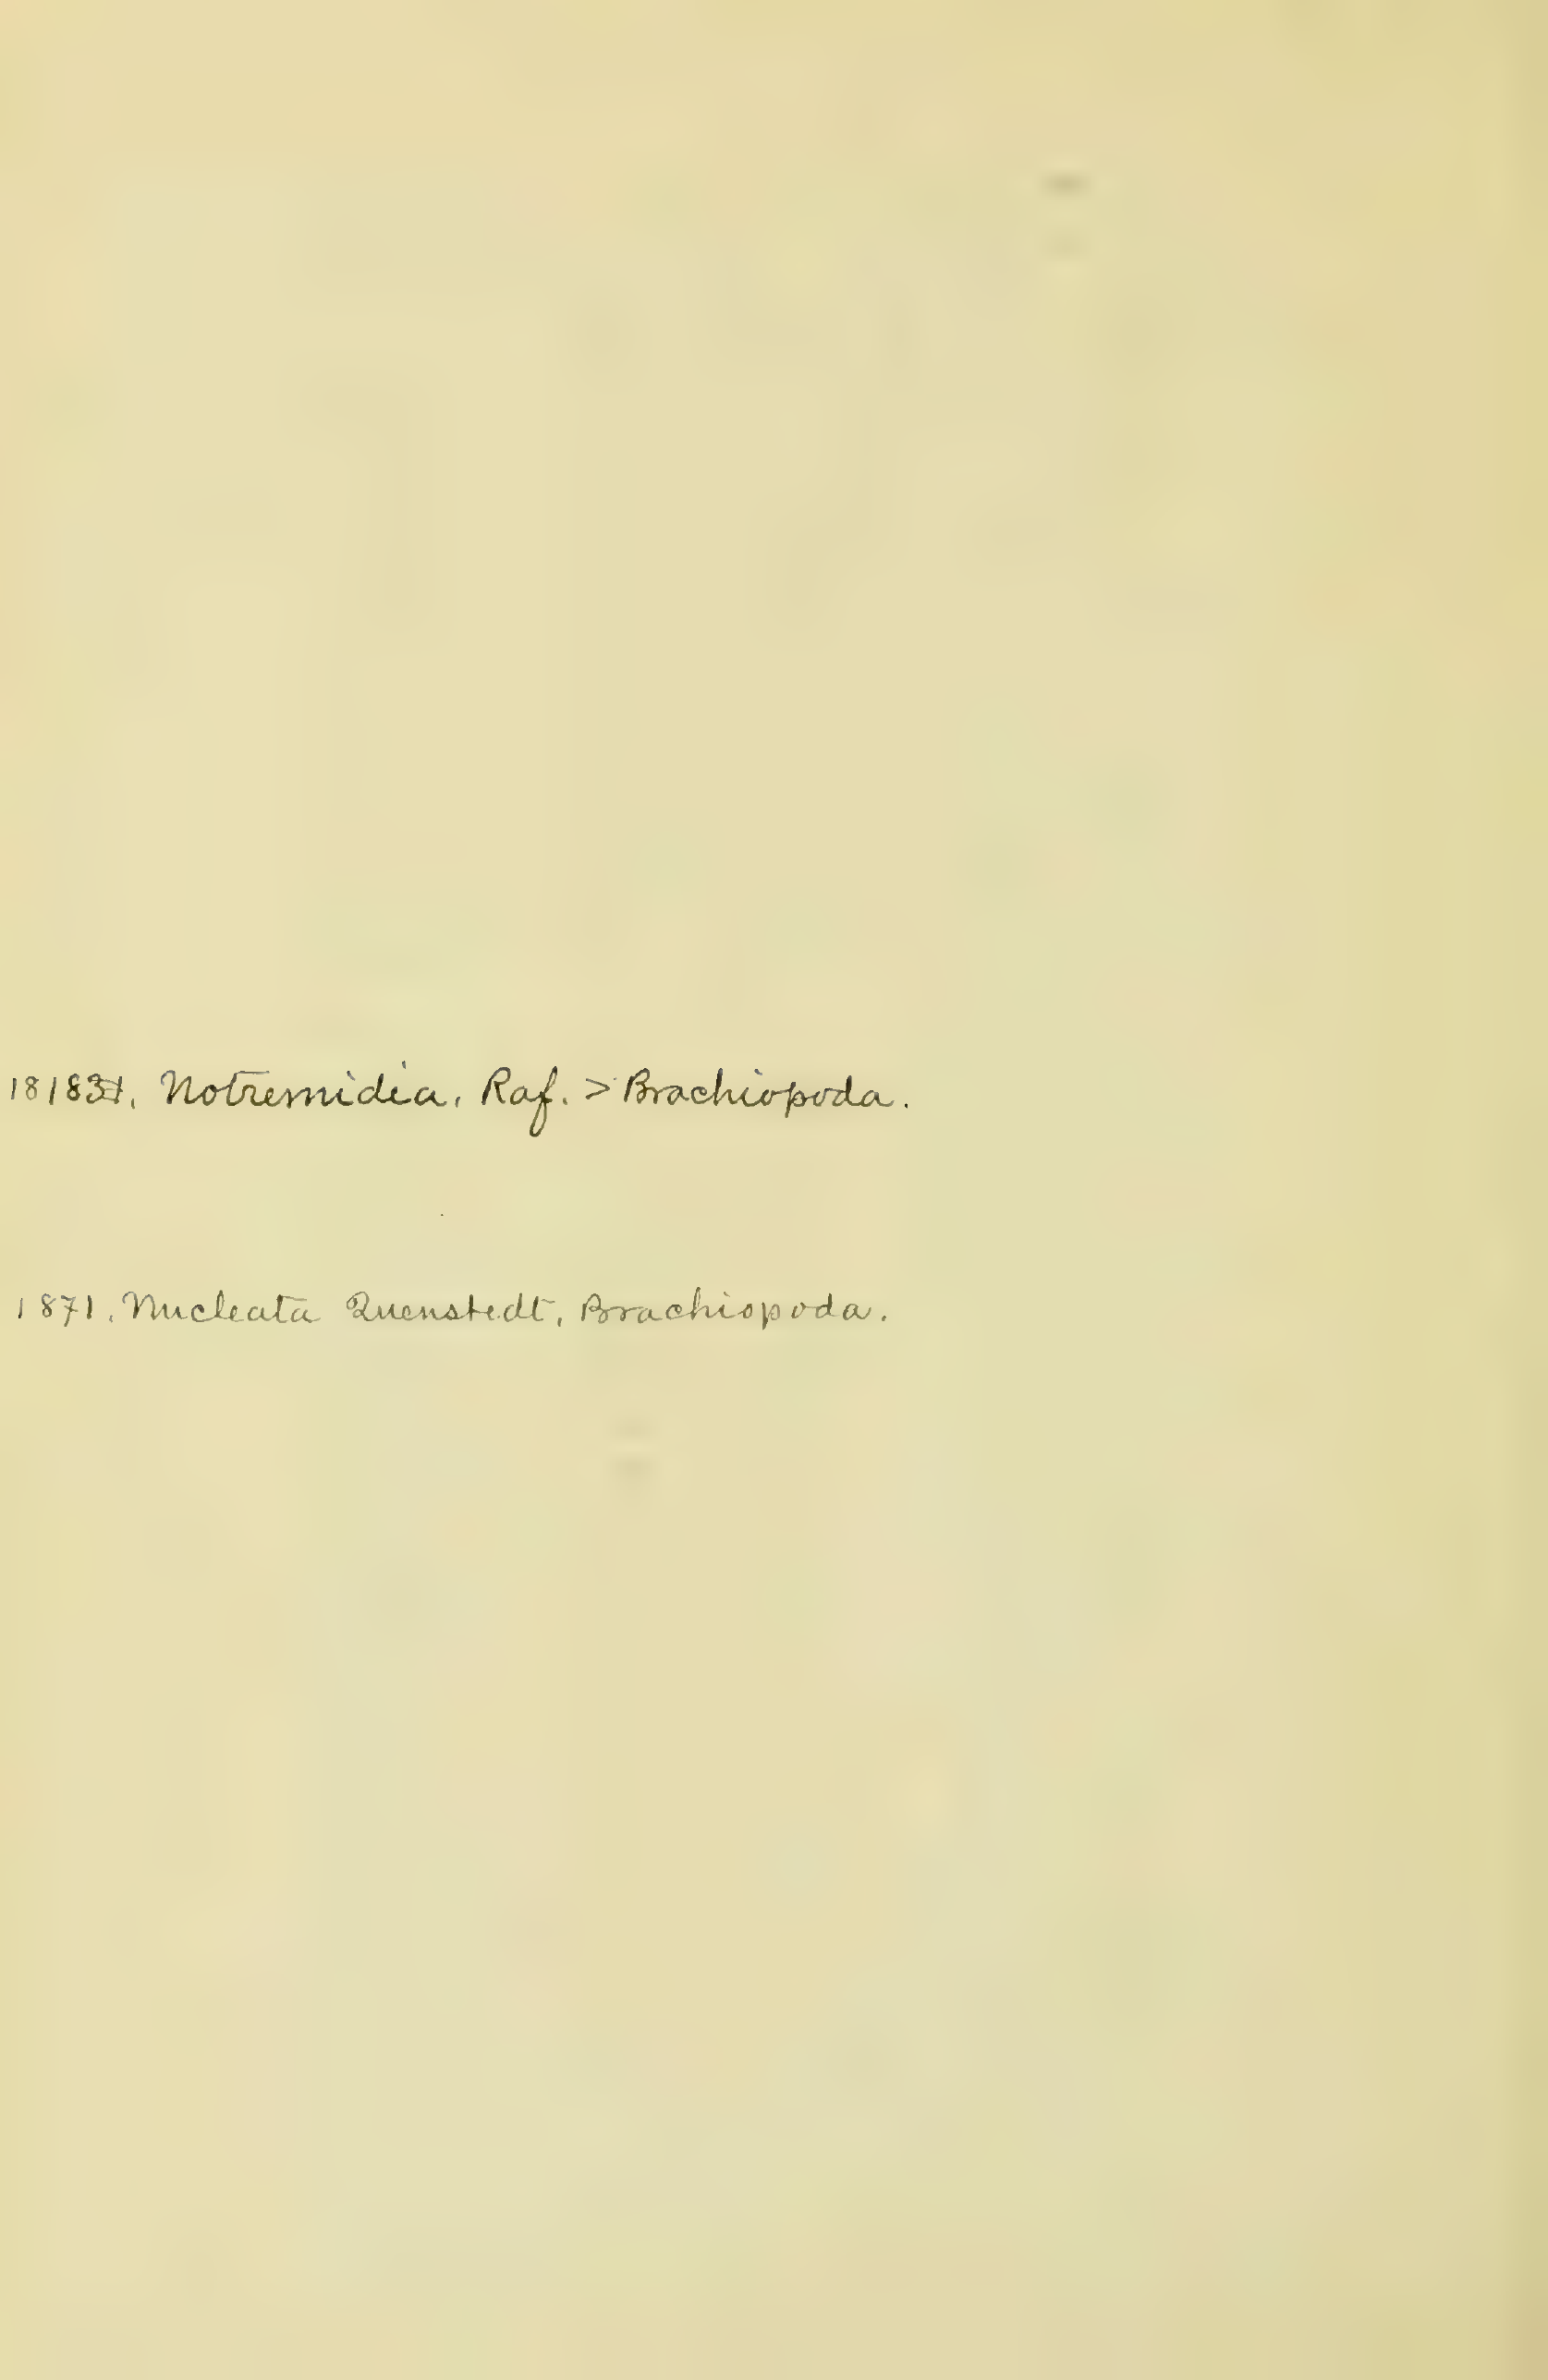 1818 Notremidia, Raf. > Brachiopoda.
1871. Nucleata Quenstedt, Brachiopoda.